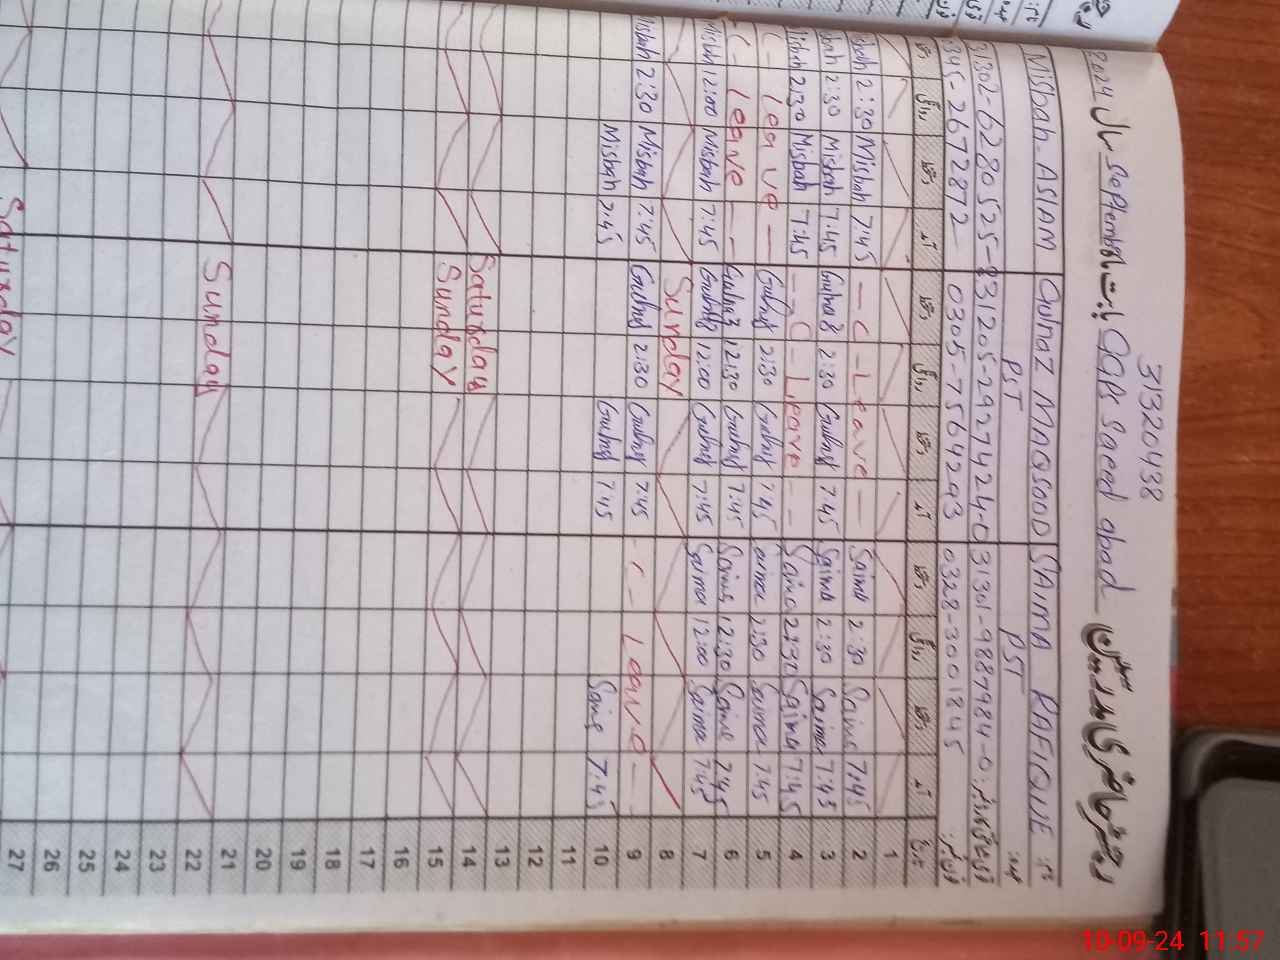 31320438
رجسٹر حاضری مدرسین GGPS Saeed abad بابت ماہ September سال 2024
نام: SAIMA RAFIQUE Gulnaz MAQSOOD Misbah ASLAM
عہدہ: PST PST
31301-9887984-0 31205-2927424-0 31302-6280525-8
فون نمبر: 0328-3001845 0305-7564293 0345-2672872
تاریخ آمد دستخط روانگی دستخط آمد دستخط روانگی دستخط آمد دستخط روانگی دستخط
1
2 7:45 Saima 2:30 Saima — Leave — 7:45 Misbah 2:30 Misbah
3 7:45 Saima 2:30 Saima 7:45 Gulnaz 2:30 Gulnaz 7:45 Misbah 2:30 Misbah
4 7:45 Saima 2:30 Saima — Leave — 7:45 Misbah 2:30 Misbah
5 7:45 Saima 2:30 Saima 7:45 Gulnaz 2:30 Gulnaz — Leave —
6 7:45 Saima 12:30 Saima 7:45 Gulnaz 12:30 Gulnaz — Leave —
7 7:45 Saima 12:00 Saima 7:45 Gulnaz 12:00 Gulnaz 7:45 Misbah 12:00 Misbah
8 Sunday
9 — Leave — 7:45 Gulnaz 2:30 Gulnaz 7:45 Misbah 2:30 Misbah
10 7:45 Saima 7:45 Gulnaz 7:45 Misbah
11
12
13
14 Saturday
15 Sunday
16
17
18
19
20
21
22 Sunday
23
24
25
26
27 Saturday
10-09-24 11:57